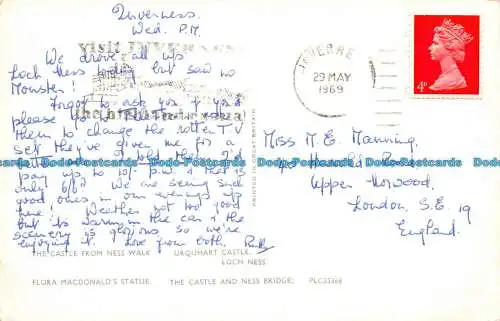 Inverness.
Wed. P.M.
We drove all up
Loch Ness today but saw no
Monster!
Forgot to ask you if you'd
please
them to change the rotten T.V
set they've given me for a
told them I'd
pay up to 10/- p.w & that is
only 6/6? We are seeing such
good ones in our evenings up
here! Weather not too good
but it's warm in the car & the
scenery is glorious so we're
enjoying it. Love from both.
VISIT INVERNESS
INVERNESS
29 MAY
1969
4D
Miss M. E. Manning,
Road,
Upper Norwood,
London, S.E. 19
England.
PRINTED IN GREAT BRITAIN
Dodo-Postcards Dodo-Postcards Dodo-Postcards Dodo-Postcards Dodo-Postcards
THE CASTLE FROM NESS WALK URQUHART CASTLE,
LOCH NESS
FLORA MACDONALD'S STATUE. THE CASTLE AND NESS BRIDGE. PLC33368